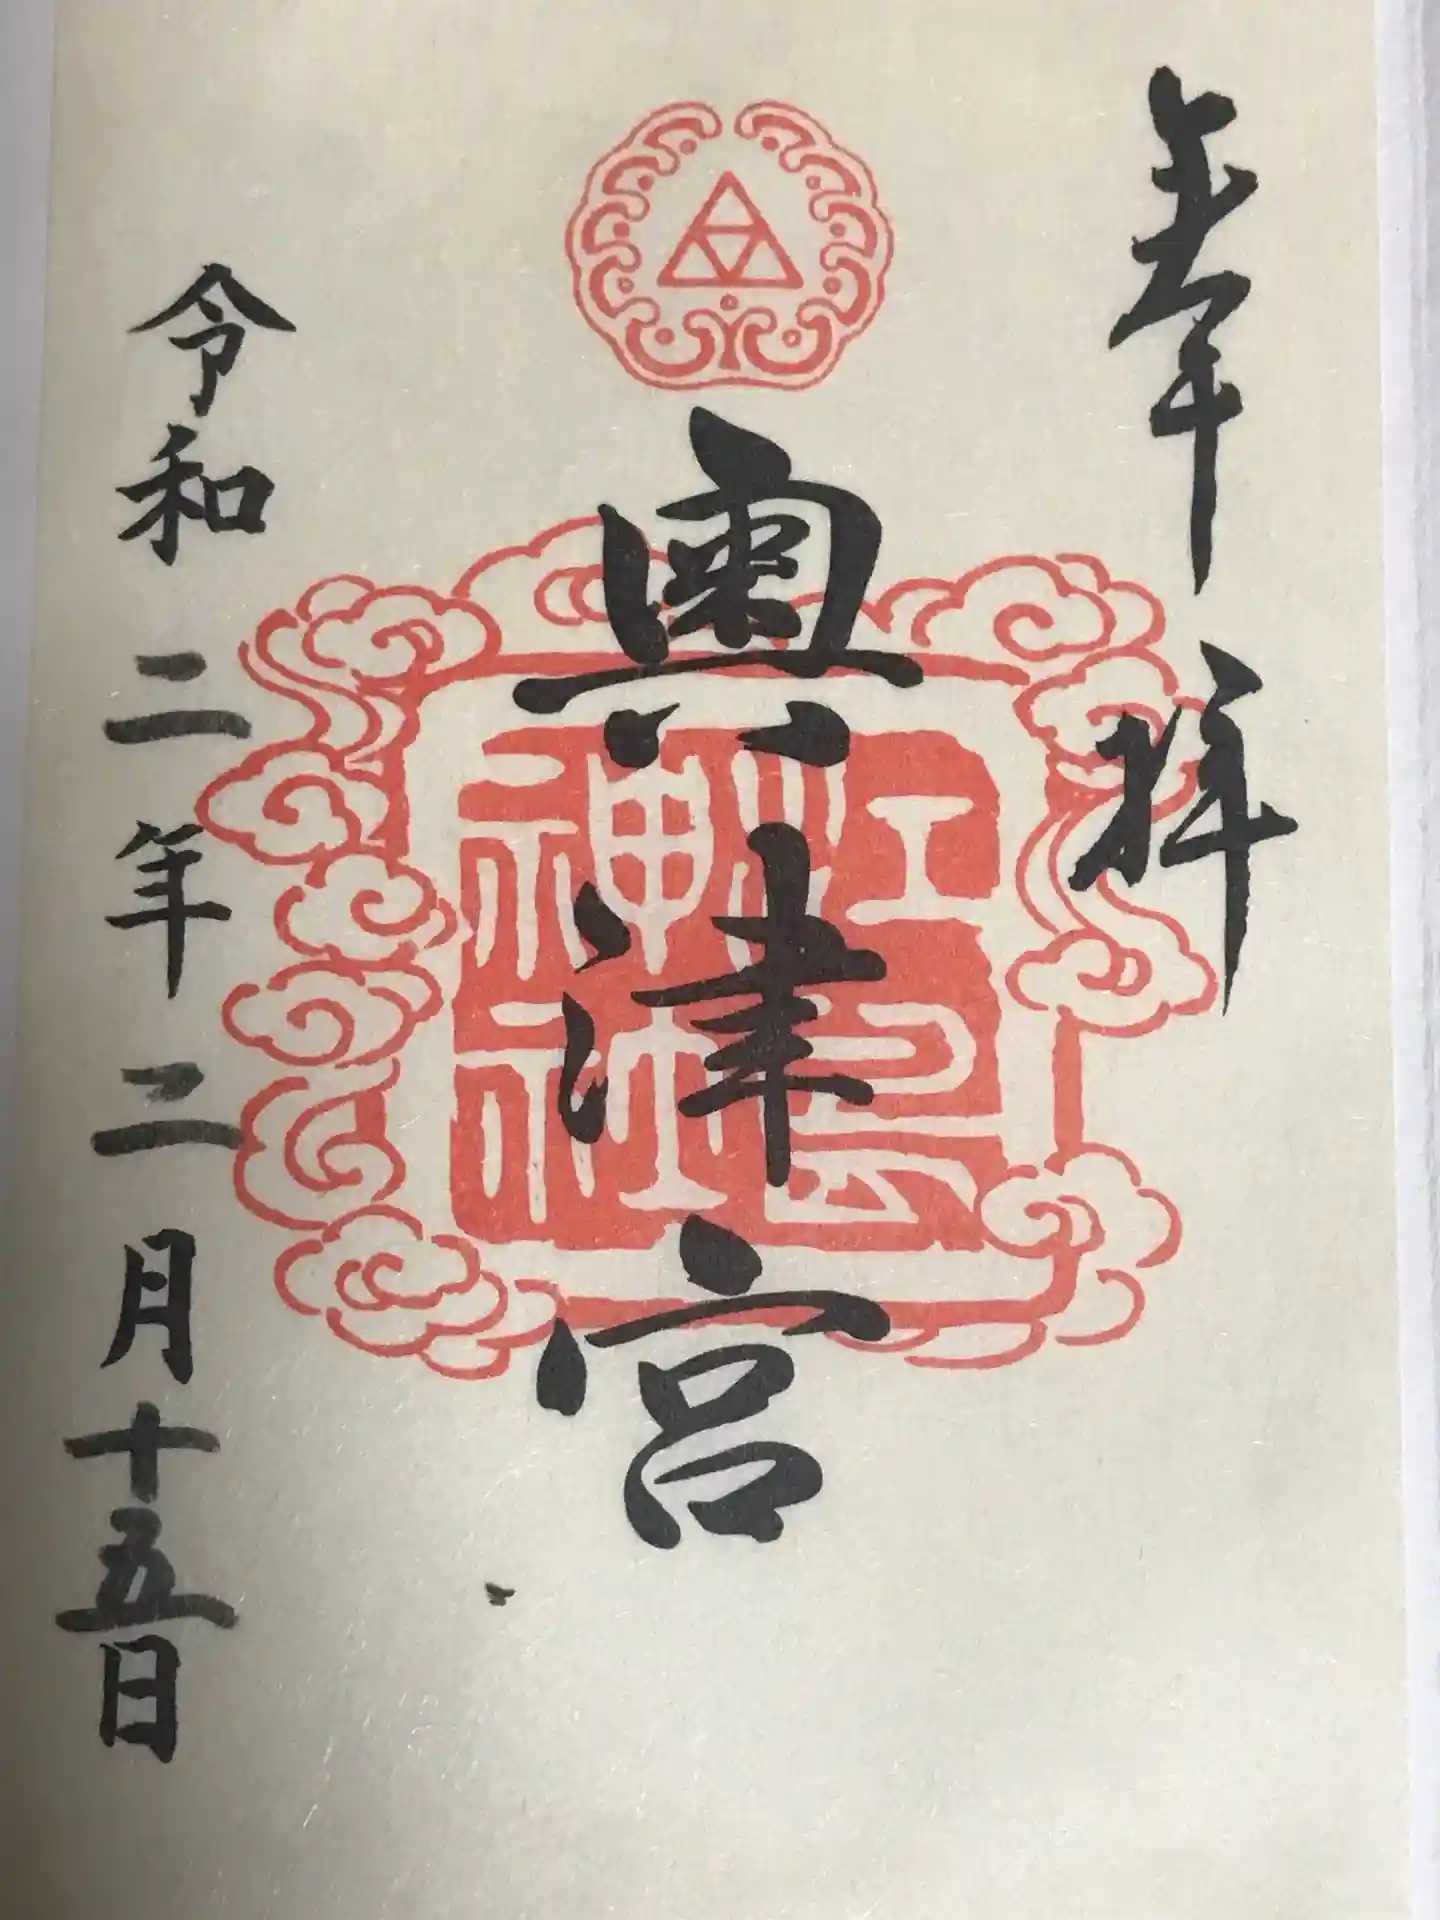 奉拝
奥津宮
江島
神社
令和二年二月十五日